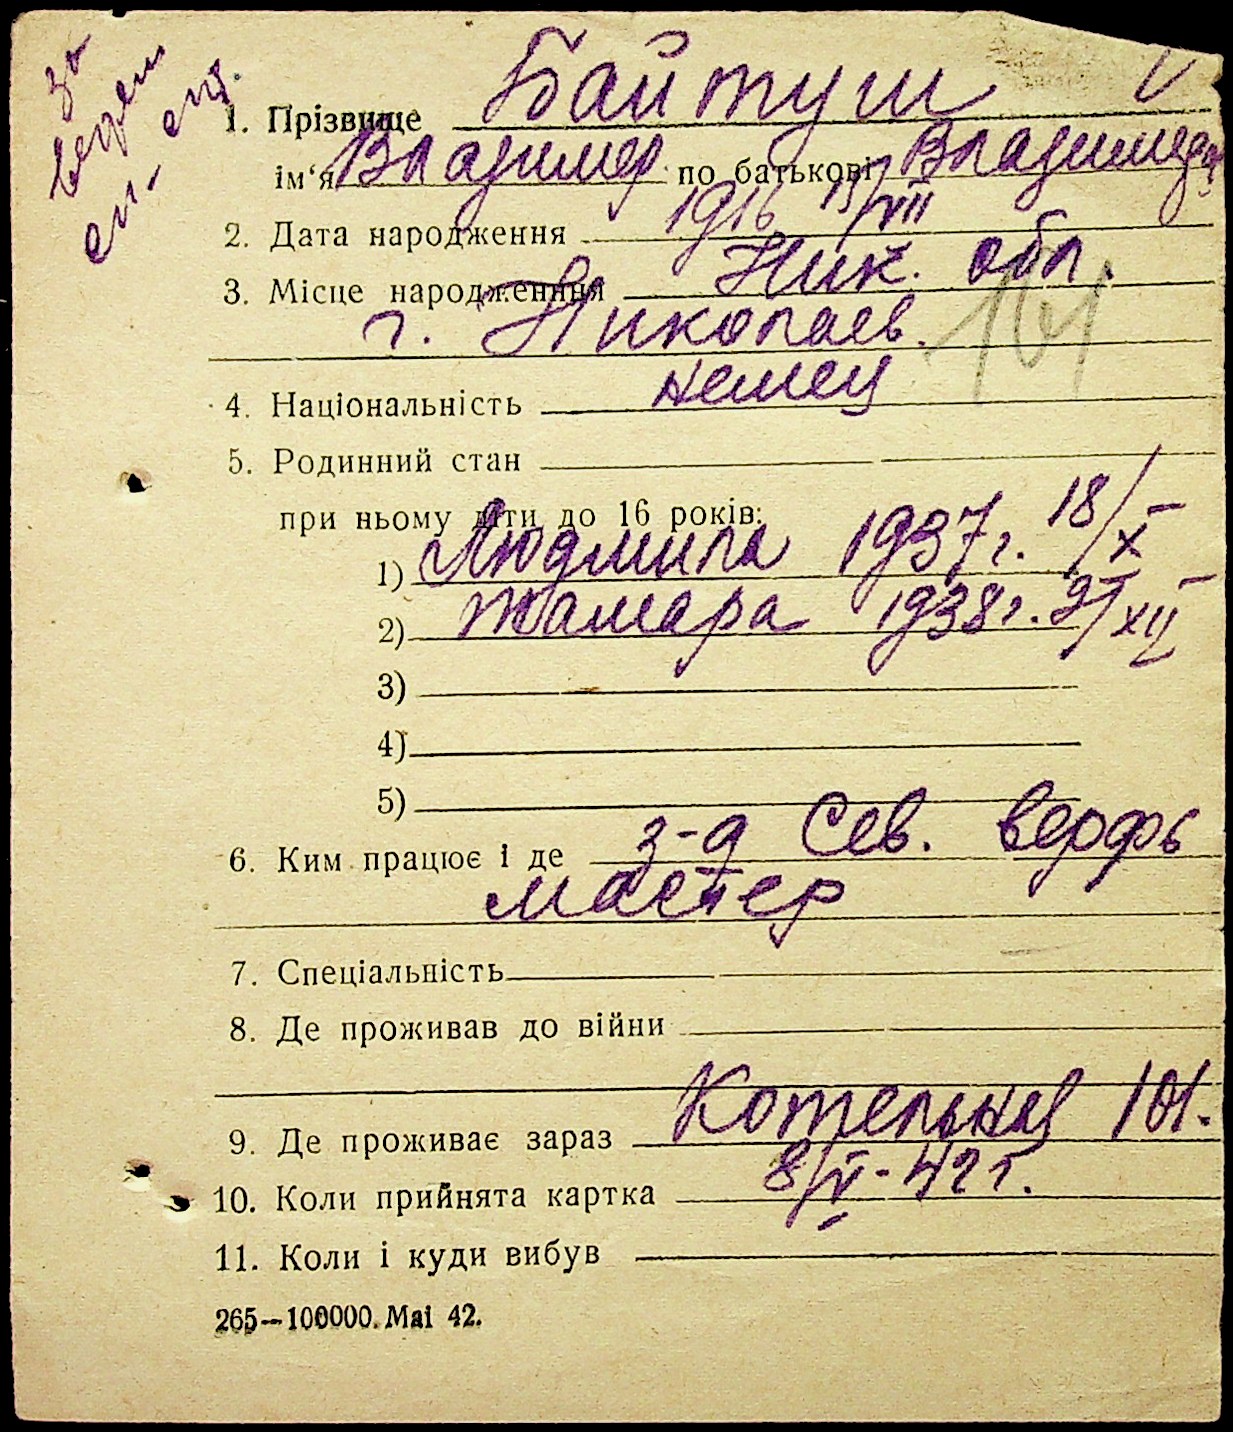 1. Прізвище Байтуш
ім‘я Владимер по батькові Владимер
2. Дата народження 1916 13/VII
3. Місце народженння Ник. обл.
г. Николаев.
101
4. Національність немец
5. Родинний стан
при ньому діти до 16 років:
1) Людмила 1937г. 18/X
2) Тамара 1938г. 27/XII
3)
4)
5)
6. Ким працює і де з-д Сев. верфь
мастер
7. Спеціальність
8. Де проживав до війни
9. Де проживає зараз Котельная 101.
10. Коли прийнята картка 8/V-42г.
11. Коли і куди вибув
265—100000. Mai 42.